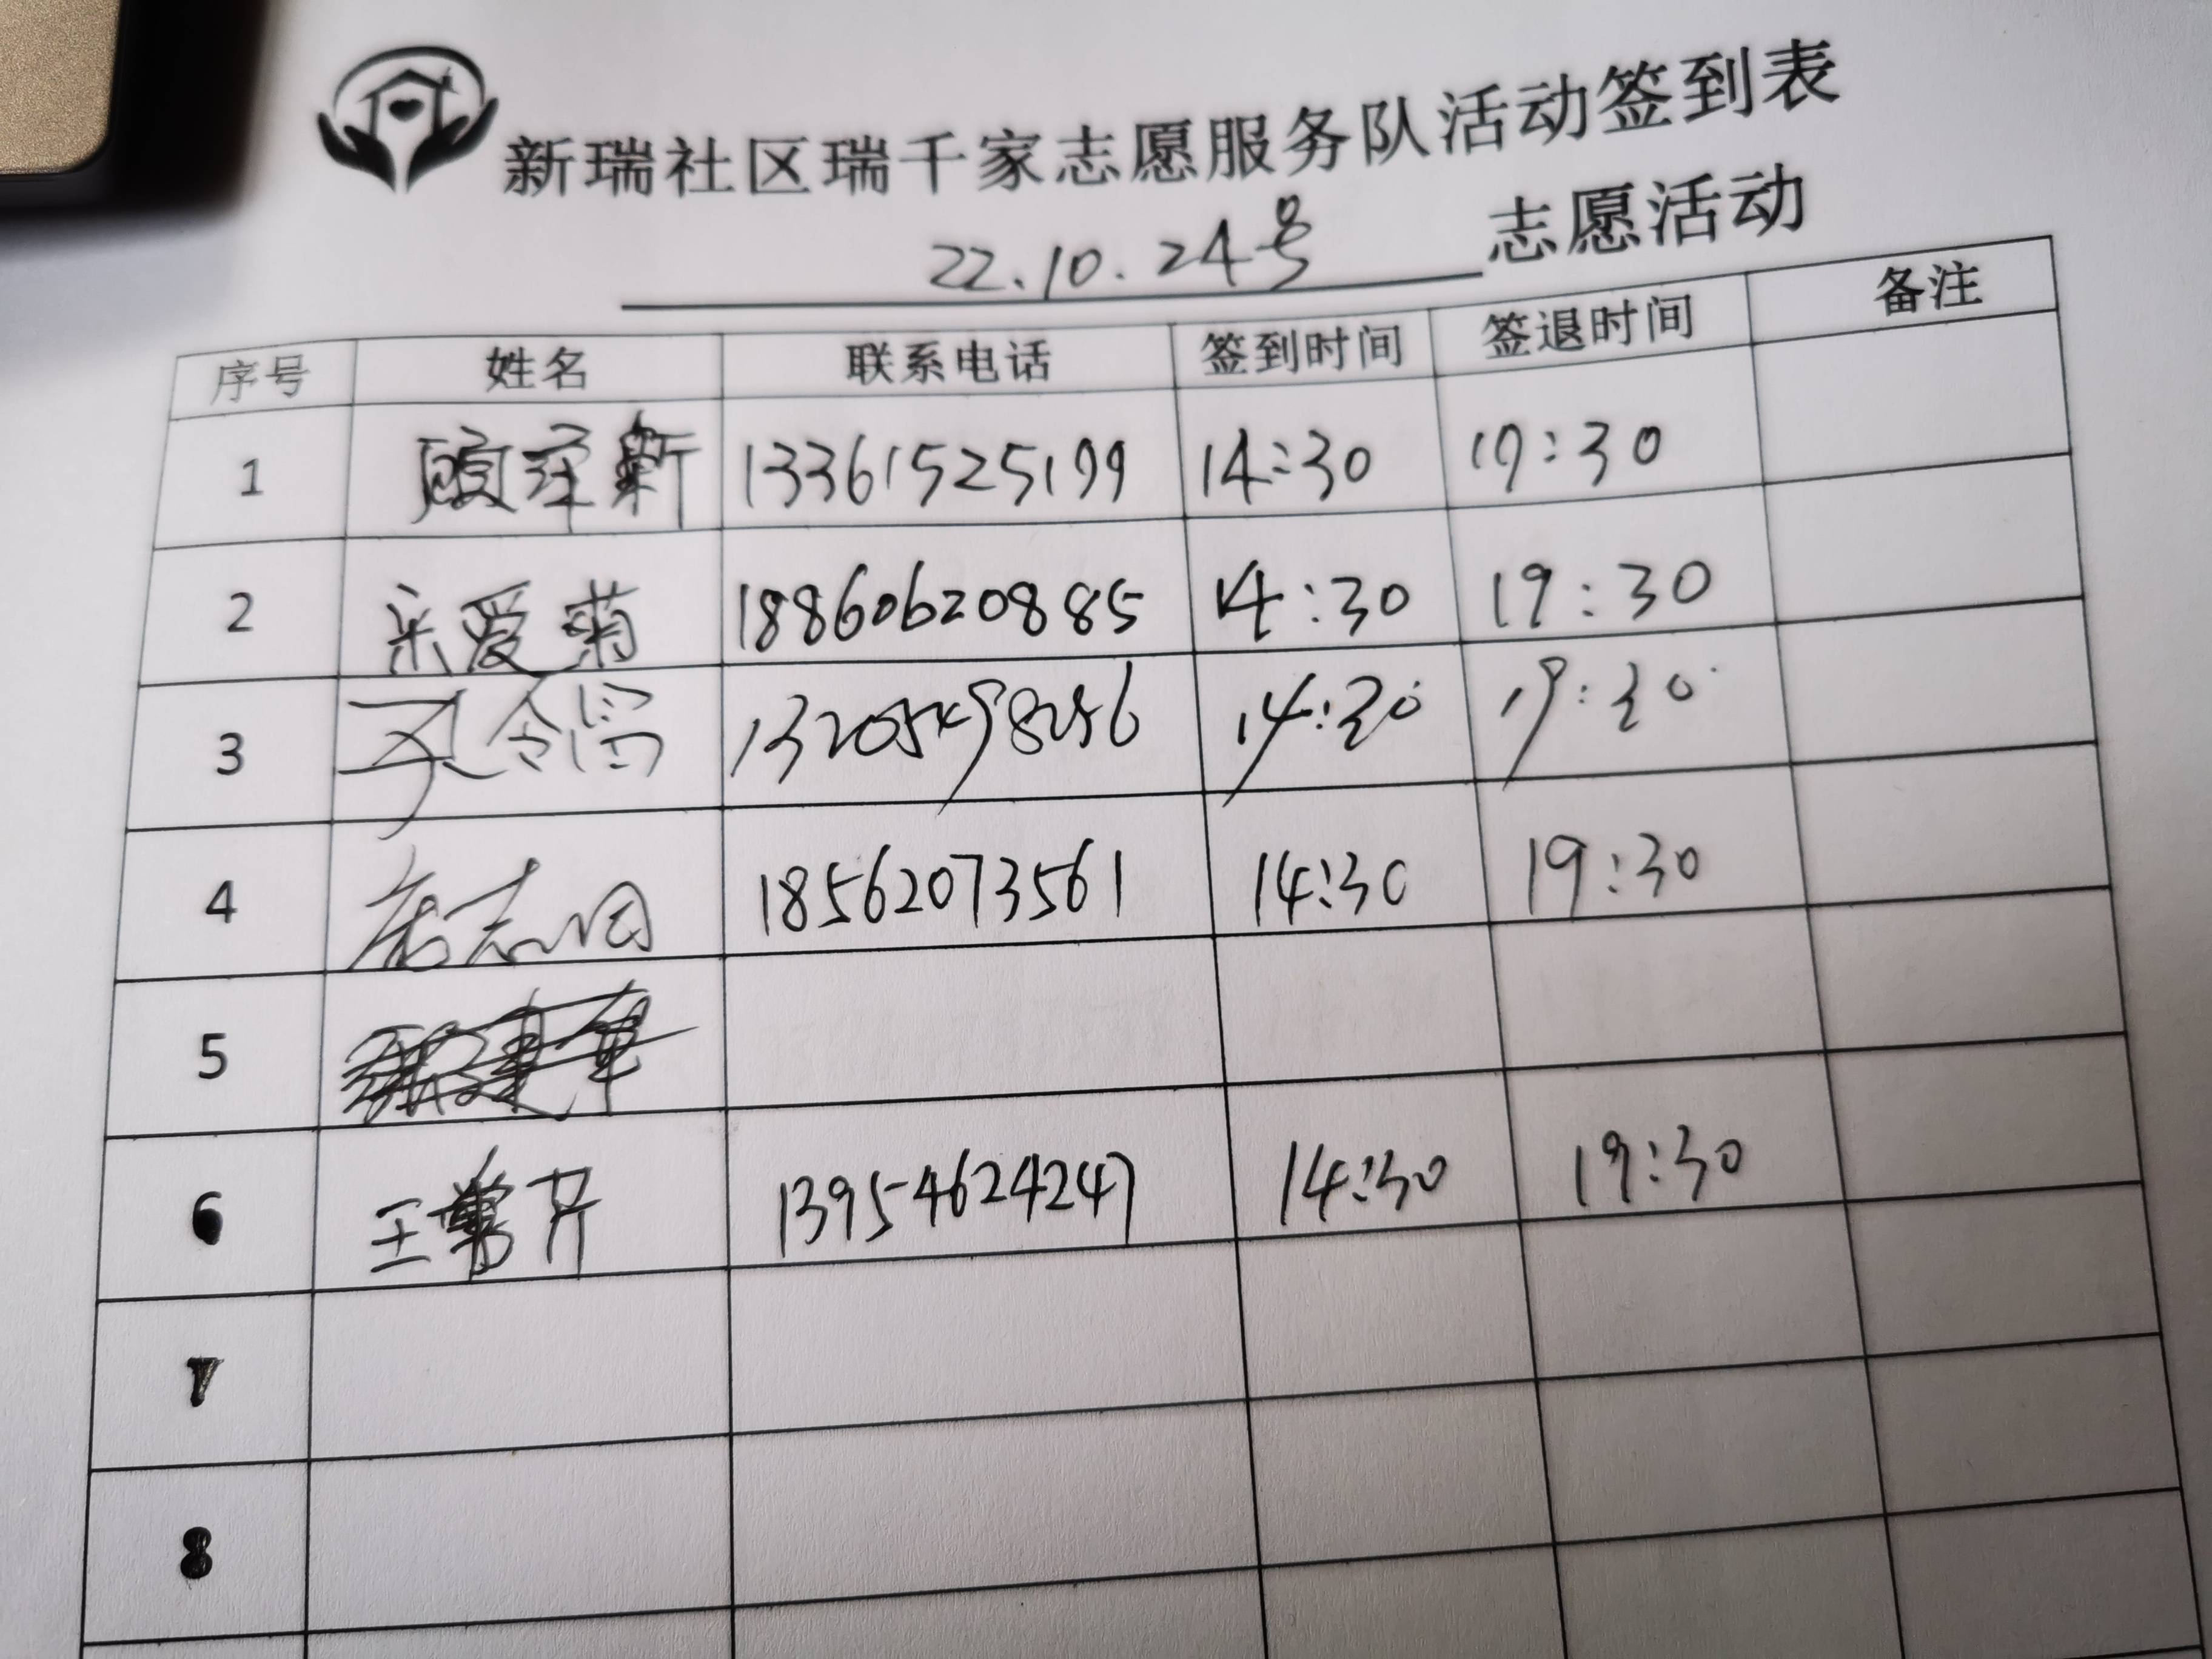 新瑞社区瑞千家志愿服务队活动签到表
22.10.24号 志愿活动
序号 姓名 联系电话 签到时间 签退时间 备注
1 13361525199 14:30 19:30
2 爱菊 18860620885 14:30 19:30
3 14:30 19:30
4 志 18562073561 14:30 19:30
5
6 王 芹 13954624247 14:30 19:30
7
8